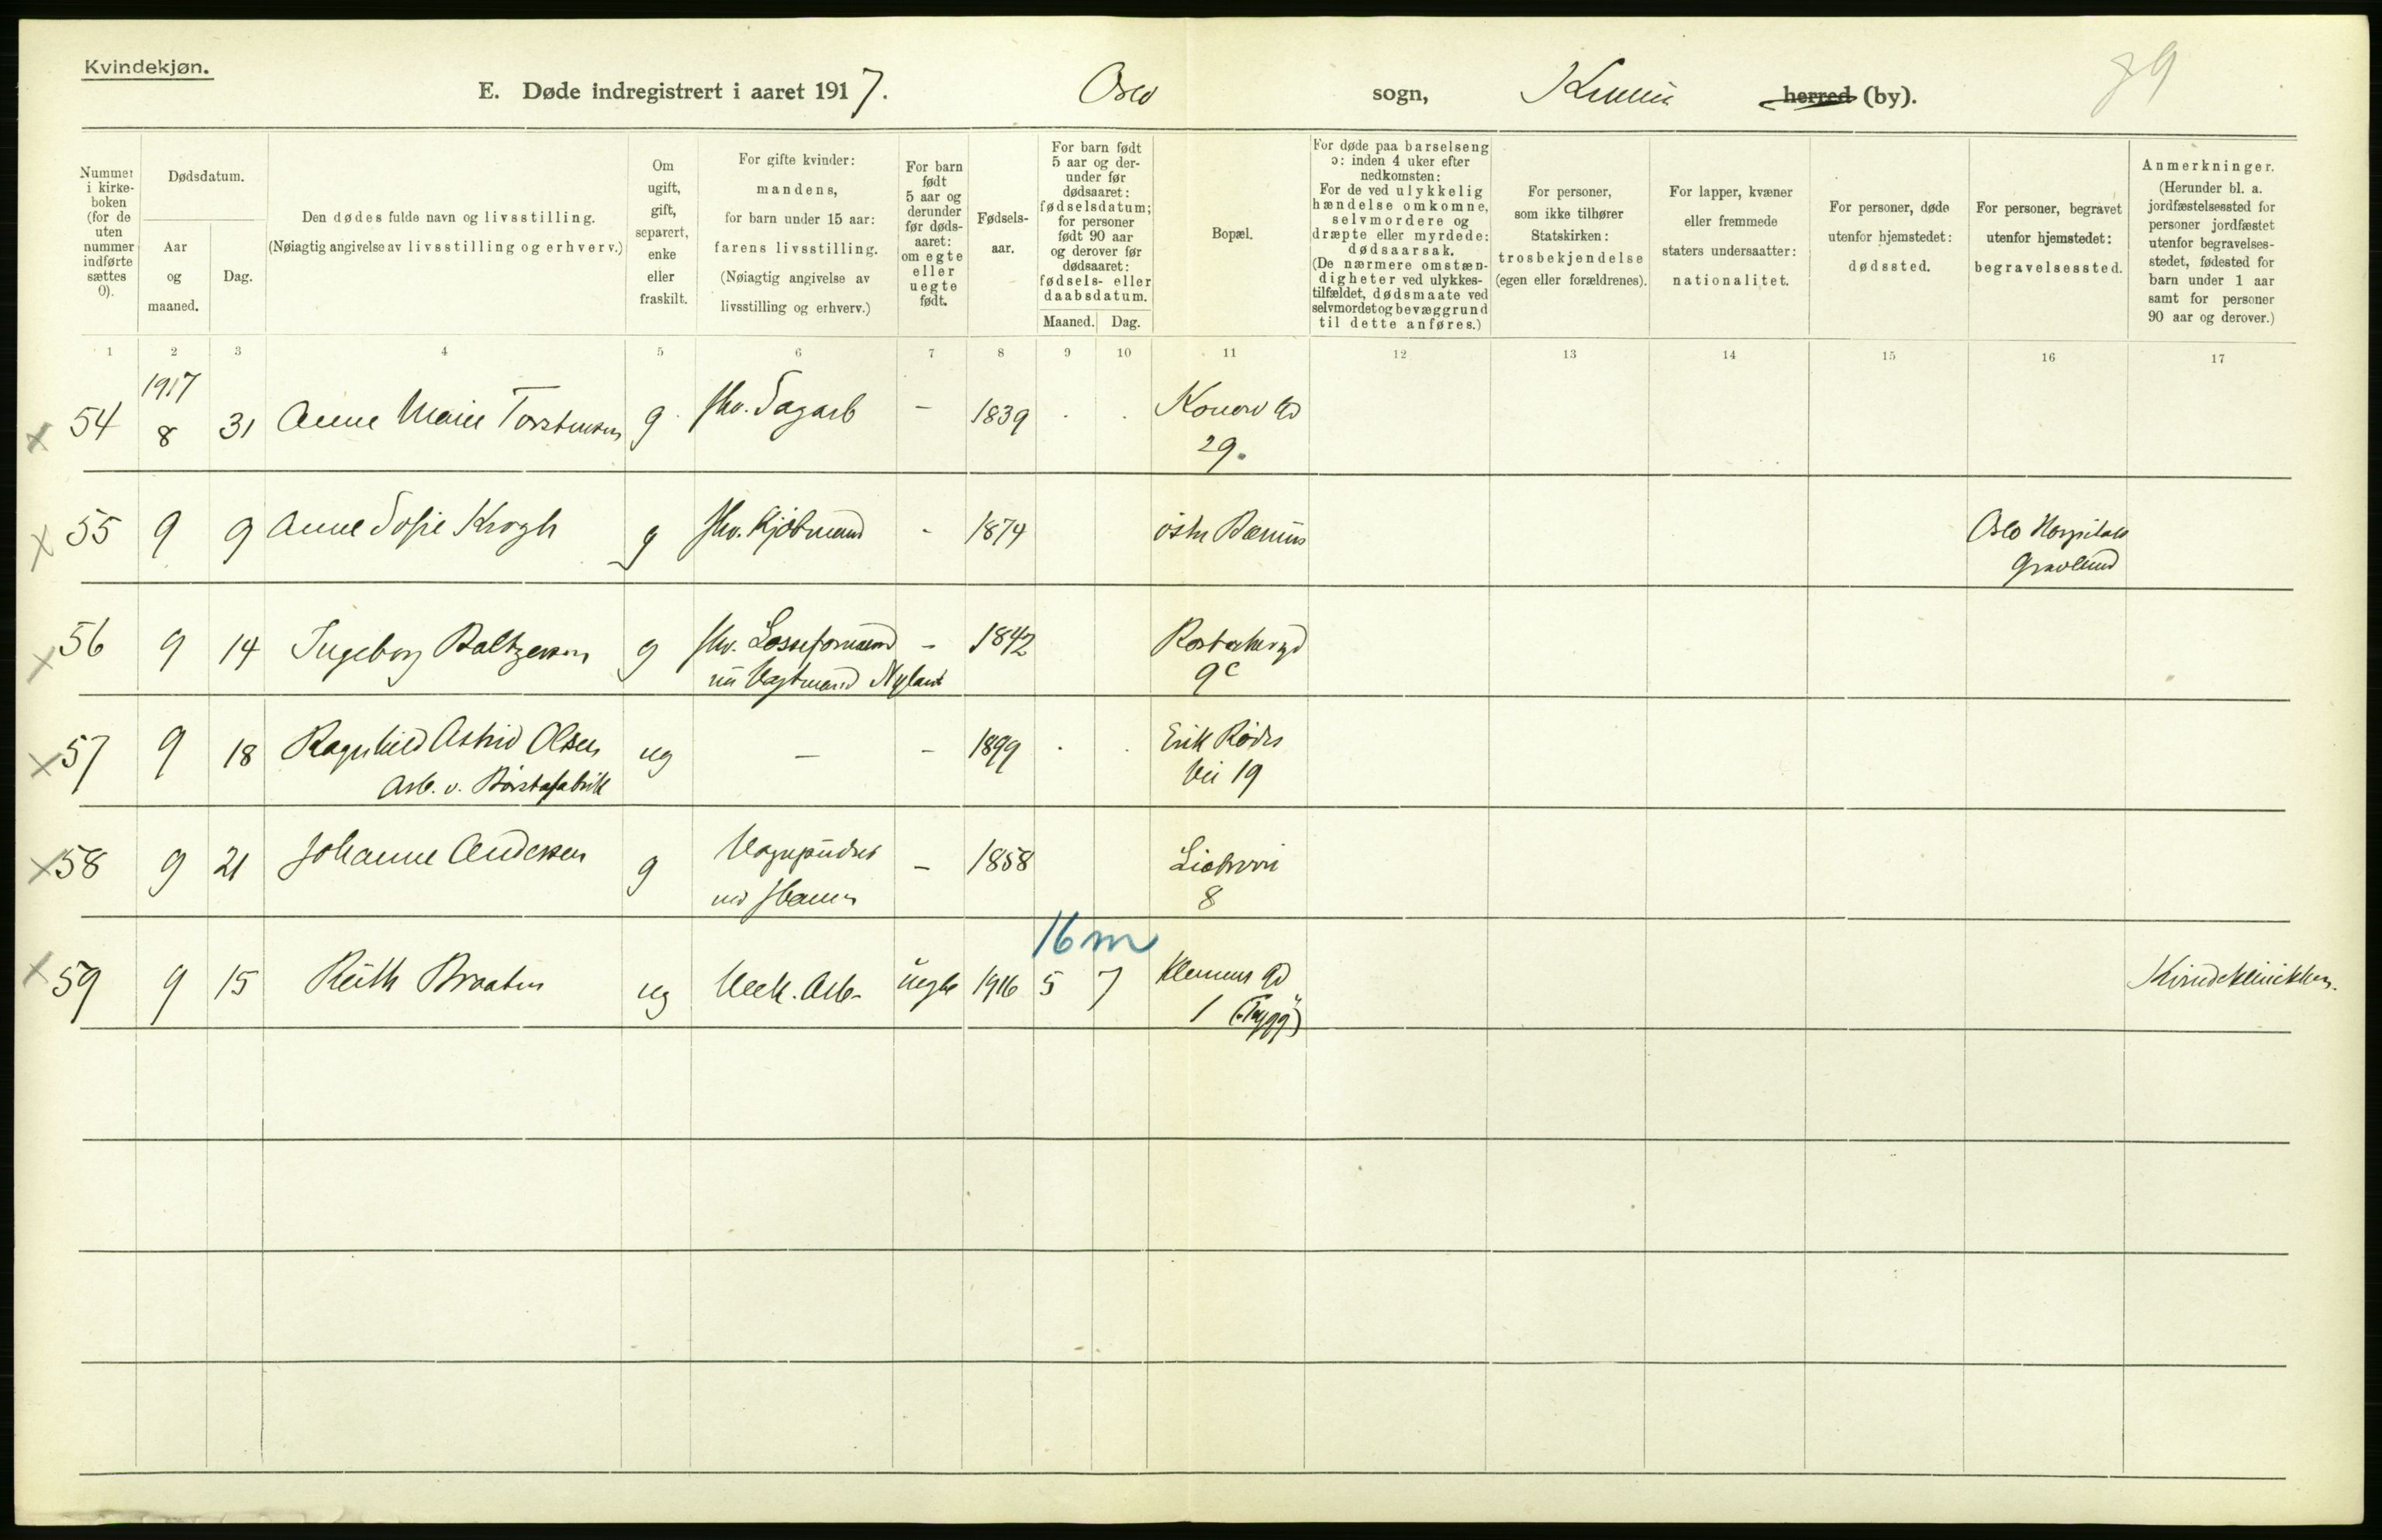 Kvindekjøn.
E. Døde indregistrert i aaret 1917. Oslo sogn, herred (by). 89
Nummer i kirkeboken (for de uten nummer indførte sættes 0).
Dødsdatum.
Aar og maaned.
Dag.
Den dødes fulde navn og livsstilling.
(Nøiagtig angivelse av livsstilling og erhverv.)
Om ugift, gift, separert, enke eller fraskilt.
For gifte kvinder: mandens, for barn under 15 aar: farens livsstilling. (Nøiagtig angivelse av livsstilling og erhverv.)
For barn født 5 aar og derunder før dødsaaret: om egte eller uegte født.
Fødselsaar.
For barn født 5 aar og derunder før dødsaaret: fødselsdatum; for personer født 90 aar og derover før dødsaaret: fødsels- eller daabsdatum.
Maaned. Dag.
Bopæl.
For døde paa barselseng ɔ: inden 4 uker efter nedkomsten: For de ved ulykkelig hændelse omkomne, selvmordere og dræpte eller myrdede: dødsaarsak. (De nærmere omstændigheter ved ulykkestilfældet, dødsmaate ved selvmordet og bevæggrund til dette anføres.)
For personer, som ikke tilhører Statskirken: trosbekjendelse (egen eller forældrenes).
For lapper, kvæner eller fremmede staters undersaatter: nationalitet.
For personer, døde utenfor hjemstedet: dødssted.
For personer, begravet utenfor hjemstedet: begravelsessted.
Anmerkninger. (Herunder bl. a. jordfæstelsessted for personer jordfæstet utenfor begravelsesstedet, fødested for barn under 1 aar samt for personer 90 aar og derover.)
1 2 3 4 5 6 7 8 9 10 11 12 13 14 15 16 17
1917
x 54 8 31 Anne Marie Torstensen g. fhv. Sagarb - 1839 . . Konow Gd
29.
x 55 9 9 Anne Sofie Krogh g fhv. Kjøbmand - 1874 østre Bærum Oslo Hospitals
Gravlund
x 56 9 14 Ingeborg Baltzersen g fhv. Losseformand - 1842
nu Vagtmand Nyland 9c
x 57 9 18 Ragnhild Astrid Olsen ug — - 1899 . . Erik Rødes
Arb. v. Børstefabrik Vei 19
x 58 9 21 Johanne Andersen g Vognpudser - 1858
ved 8
16 m
x 59 9 15 Ruth Braaten ug Mek. Arb. uegte 1916 5 7 Klemens Gd Kvindeklinikken.
1 ("Trygg")